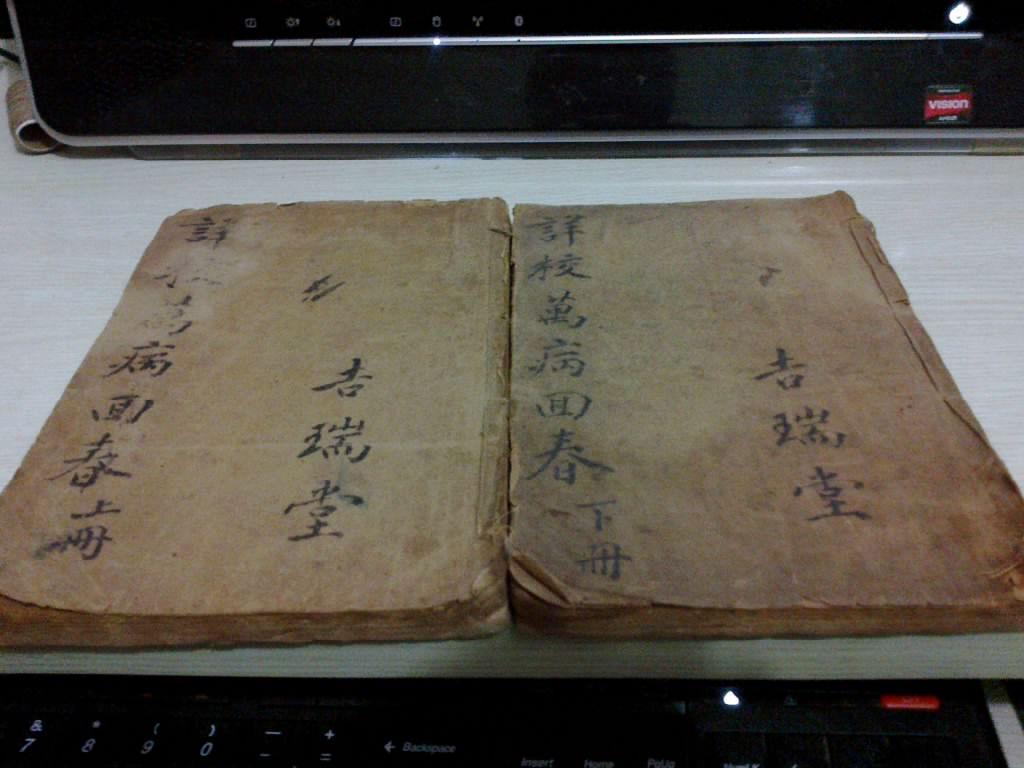 VISION
AMD
詳校萬病囬春上冊
吉瑞堂
詳校萬病囬春下冊
吉瑞堂
& * ( ) _ +
7 8 9 0 - = ← Backspace
Insert Home PgUp